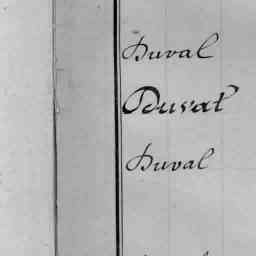 Duval
Duvat
Duval